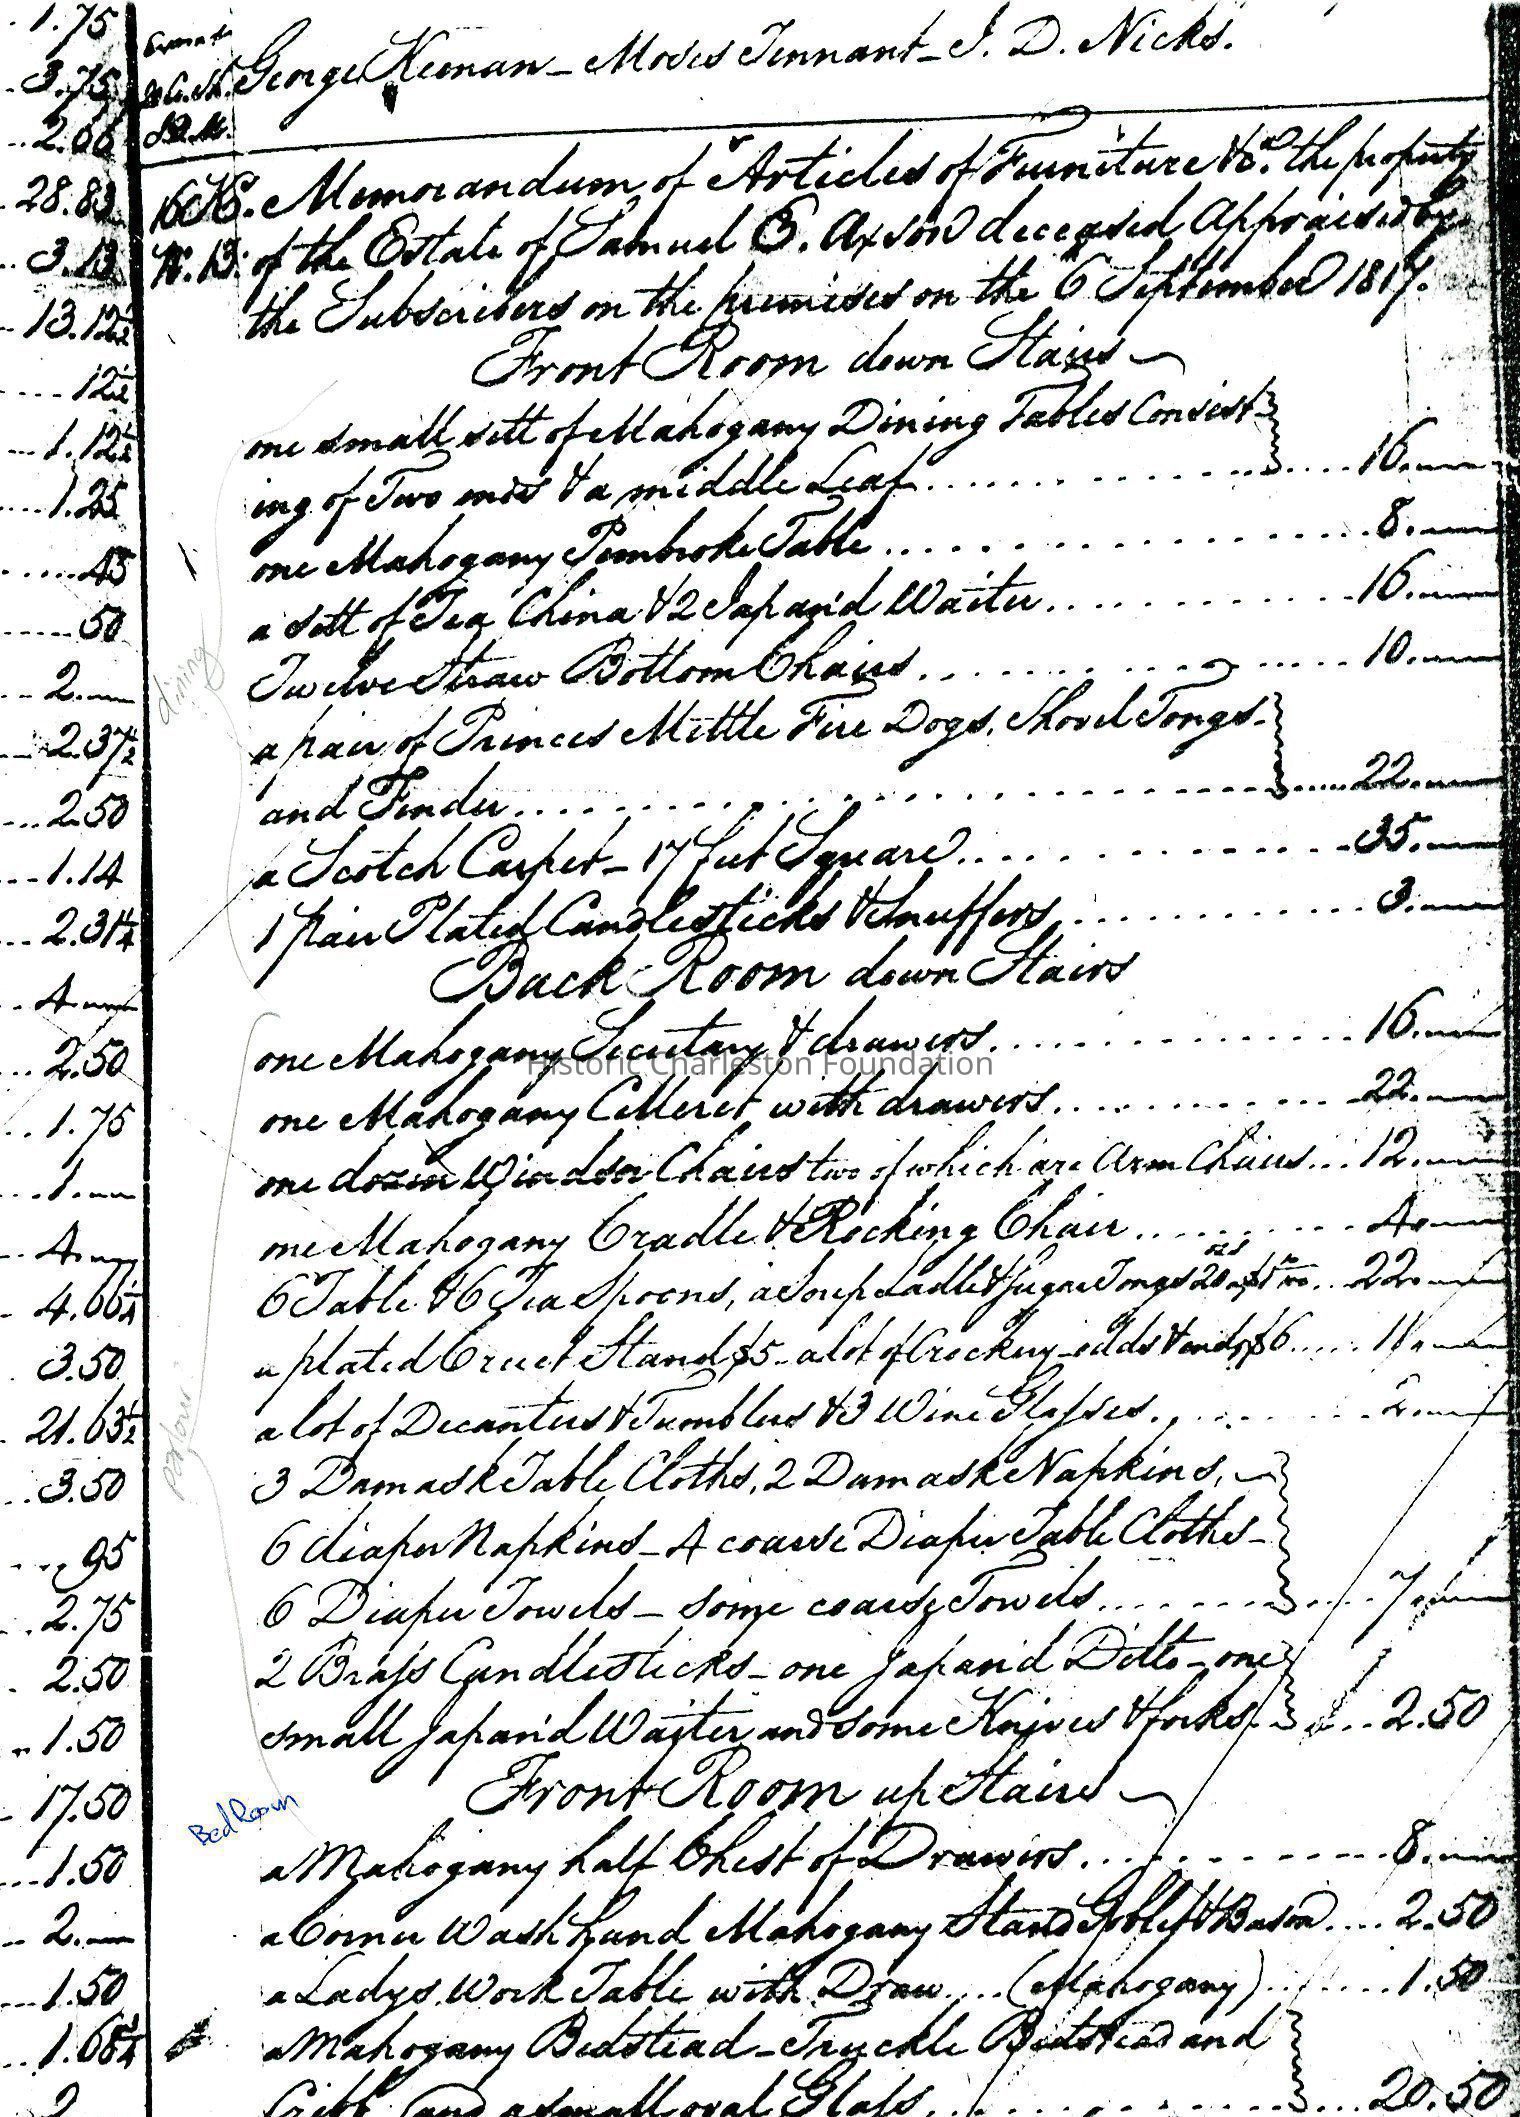 1.75
3.75
2.66
28.83
3.13
13.12½
12½
1.12½
1.25
45
50
2.
2.37½
2.50
1.14
2.31¼
4
2.50
1.75
1.
4.
4.66¼
3.50
21.63½
3.50
95
2.75
2.50
1.50
17.50
1.50
2.
1.50
1.68¼
2
George Keenan_ Moses Tennant_ J. D. Nicks.
Memorandum of Articles of Furniture &c. the property
of the Estate of Samuel E. Axson deceased Appraised by
the Subscribers on the premises on the 6 September 1817.
Front Room down Stairs
one small sett of Mahogany Dining Tables Consist-
ing of Two ends & a middle Leaf ........ 16.
one Mahogany Pembroke Table ........ 8.
a sett of Tea China & 2 Japand Waiter ........ 16.
Twelve Straw Bottom Chairs ........ 10.
a pair of Princes Mettle Fire Dogs. Shovel Tongs-
and Fender ........ 22.
a Scotch Carpet_ 17 feet Square ........ 35.
1 pair Plated Candlesticks & Snuffers ........ 3.
Back Room down Stairs
one Mahogany Secretary & drawers ........ 16.
Historic Charleston Foundation
one Mahogany Celleret with drawers ........ 22.
one dozen Windsor Chairs two of which are Arm Chairs ... 12.
one Mahogany Cradle & Rocking Chair ........ 4.
6 Table & 6 Tea Spoons, a Soup Ladle & Sugar Tongs 20 ozs ... 22.
a plated Cruet Stand $5_ a lot of Crockery_odds & ends $6 ..... 11.
a lot of Decanters & Tumblers & 3 Wine Glasses ........ 2.
3 Damask Table Cloths, 2 Damask Napkins,
6 diaper Napkins_ 4 coarse Diaper Table Cloths_
6 Diaper Towels_ some coarse Towels ........ 7.
2 Brass Candlesticks_ one Japand Ditto_ one
small Japand Waiter and some Knives & forks ... 2.50
Front Room up Stairs
a Mahogany half Chest of Drawers ........ 8.
a Corner Wash hand Mahogany Stand Goblet & Bason .... 2.50
a Ladys Work Table with Draw .... (Mahogany) ....... 1.50
a Mahogany Bedstead_ Truckle Bedstead and
Cribb (and a small oval Glass ........ 20.50
dining
parlour
Bed Room